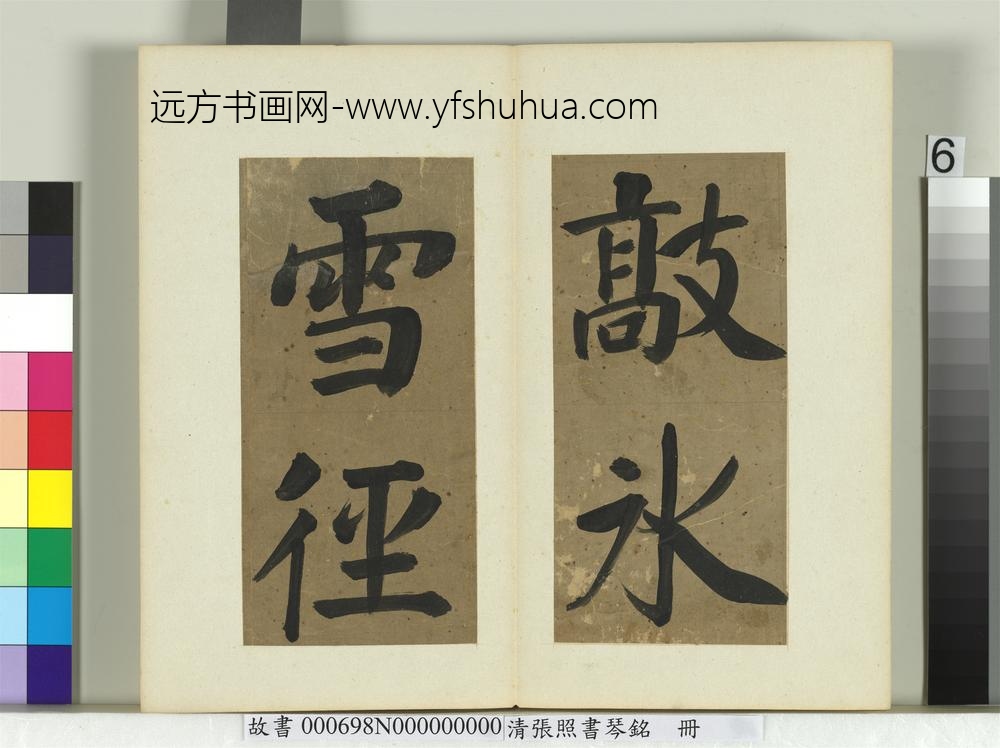 远方书画网-www.yfshuhua.com
6
敲冰
雪徑
故書 000698N000000000 清張照書琴銘 冊